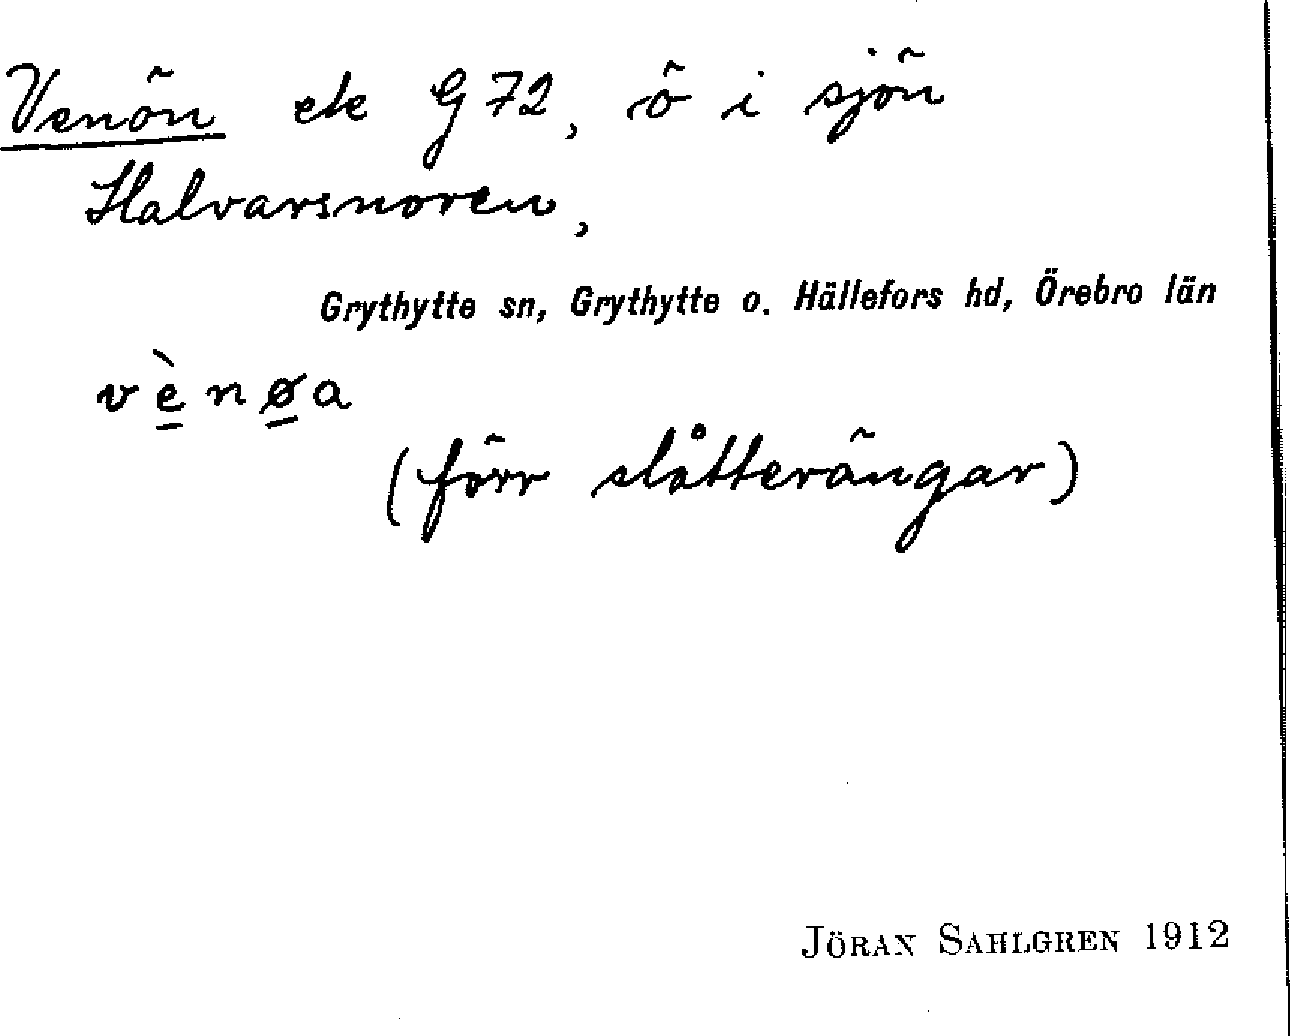 Venön ek G 72, ö i sjön
Halvarsnoren,
Grythytte sn, Grythytte o. Hällefors hd, Örebro län
vè̱nø̱a
(förr slåtterängar)
JÖRAN SAHLGREN 1912